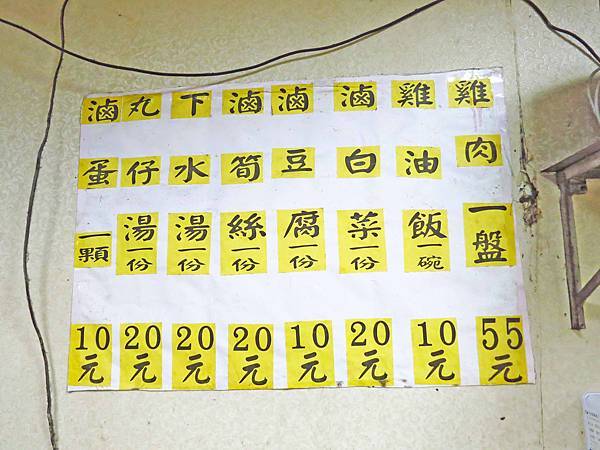 雞肉一盤 55元
雞油飯一碗 10元
滷白菜一份 20元
滷豆腐一份 10元
滷筍絲一份 20元
下水湯一份 20元
丸仔湯一份 20元
滷蛋一顆 10元